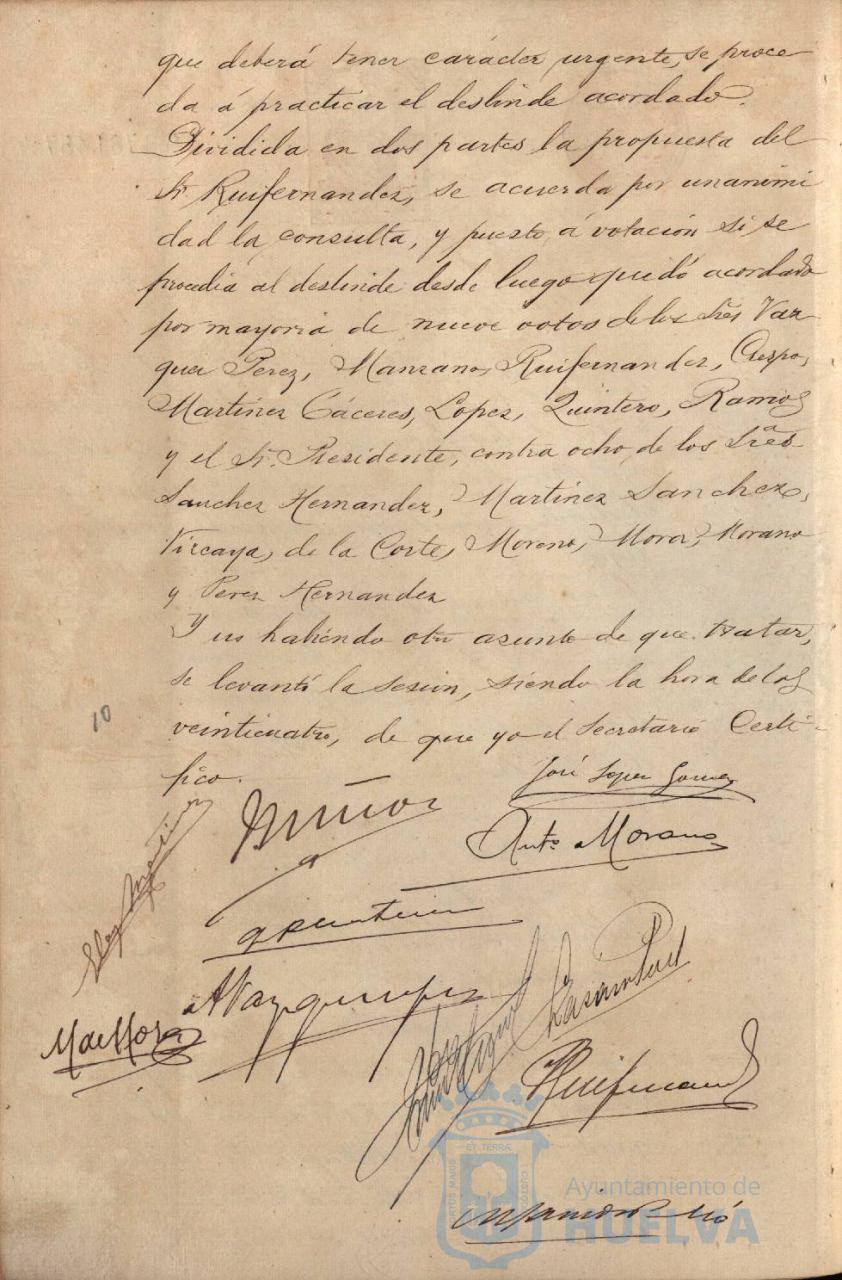 que deberá tener carácter urgente, se proce
da á practicar el deslinde acordado.
Dividida en dos partes la propuesta del
Sr. Ruifernandez, se acuerda por unanimi
dad la consulta, y puesto á votación si se
procedia al deslinde desde luego quedó acordado
por mayoria de nueve votos de los Sres Vaz
quez Perez, Manzano, Ruifernandez, Crespo,
Martinez Cáceres, Lopez, Quintero, Ramos
y el Sr. Presidente, contra ocho de los Sres
Sanchez Hernandez, Martinez Sanchez,
Vizcaya, de la Corte, Moreno, Mora, Morano
y Perez Hernandez
Y no habiendo otro asunto de que tratar,
se levantó la sesion, siendo la hora de las
veinticuatro, de que yo el Secretario Certi-
fico.
10
José Lopez Gomez
Muñoz
Antº Morano
Eloy Martinez
Quintero
A Vazquez Perez
M de Mora
Ruifernandez
ET TERRA
PORTUS MARIS
CUSTODIA
Ayuntamiento de
HUELVA